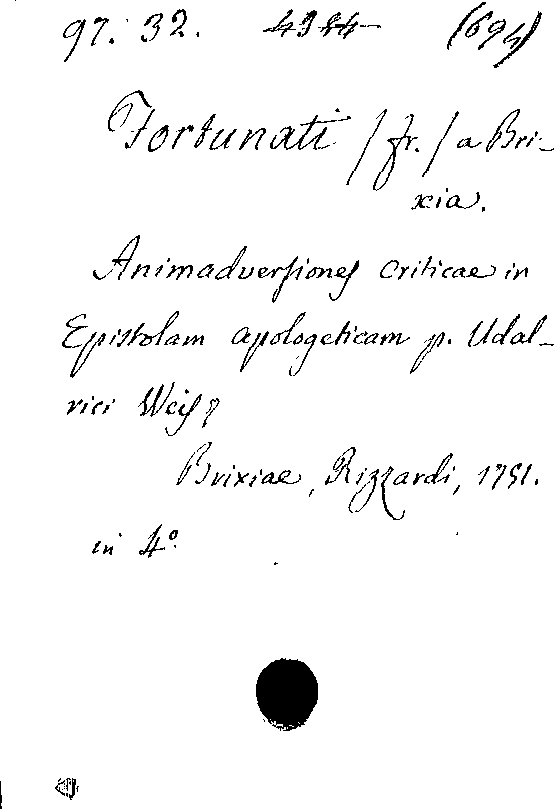 97. 32. 4384 (694)
Fortunati /fr./ a Bri-
xia.
Animadversiones criticae in
Epistolam apologeticam p. Udal-
rici Weiss
Brixiae, Rizzardi, 1751.
in 4º.